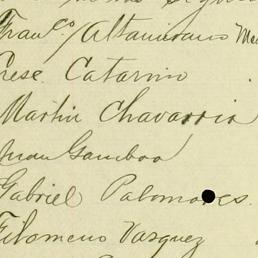 Franco Altamirano
Catarino
Martin Chavarria
Juan Gamboa
Gabriel Palomares.
Filomeno Vasquez